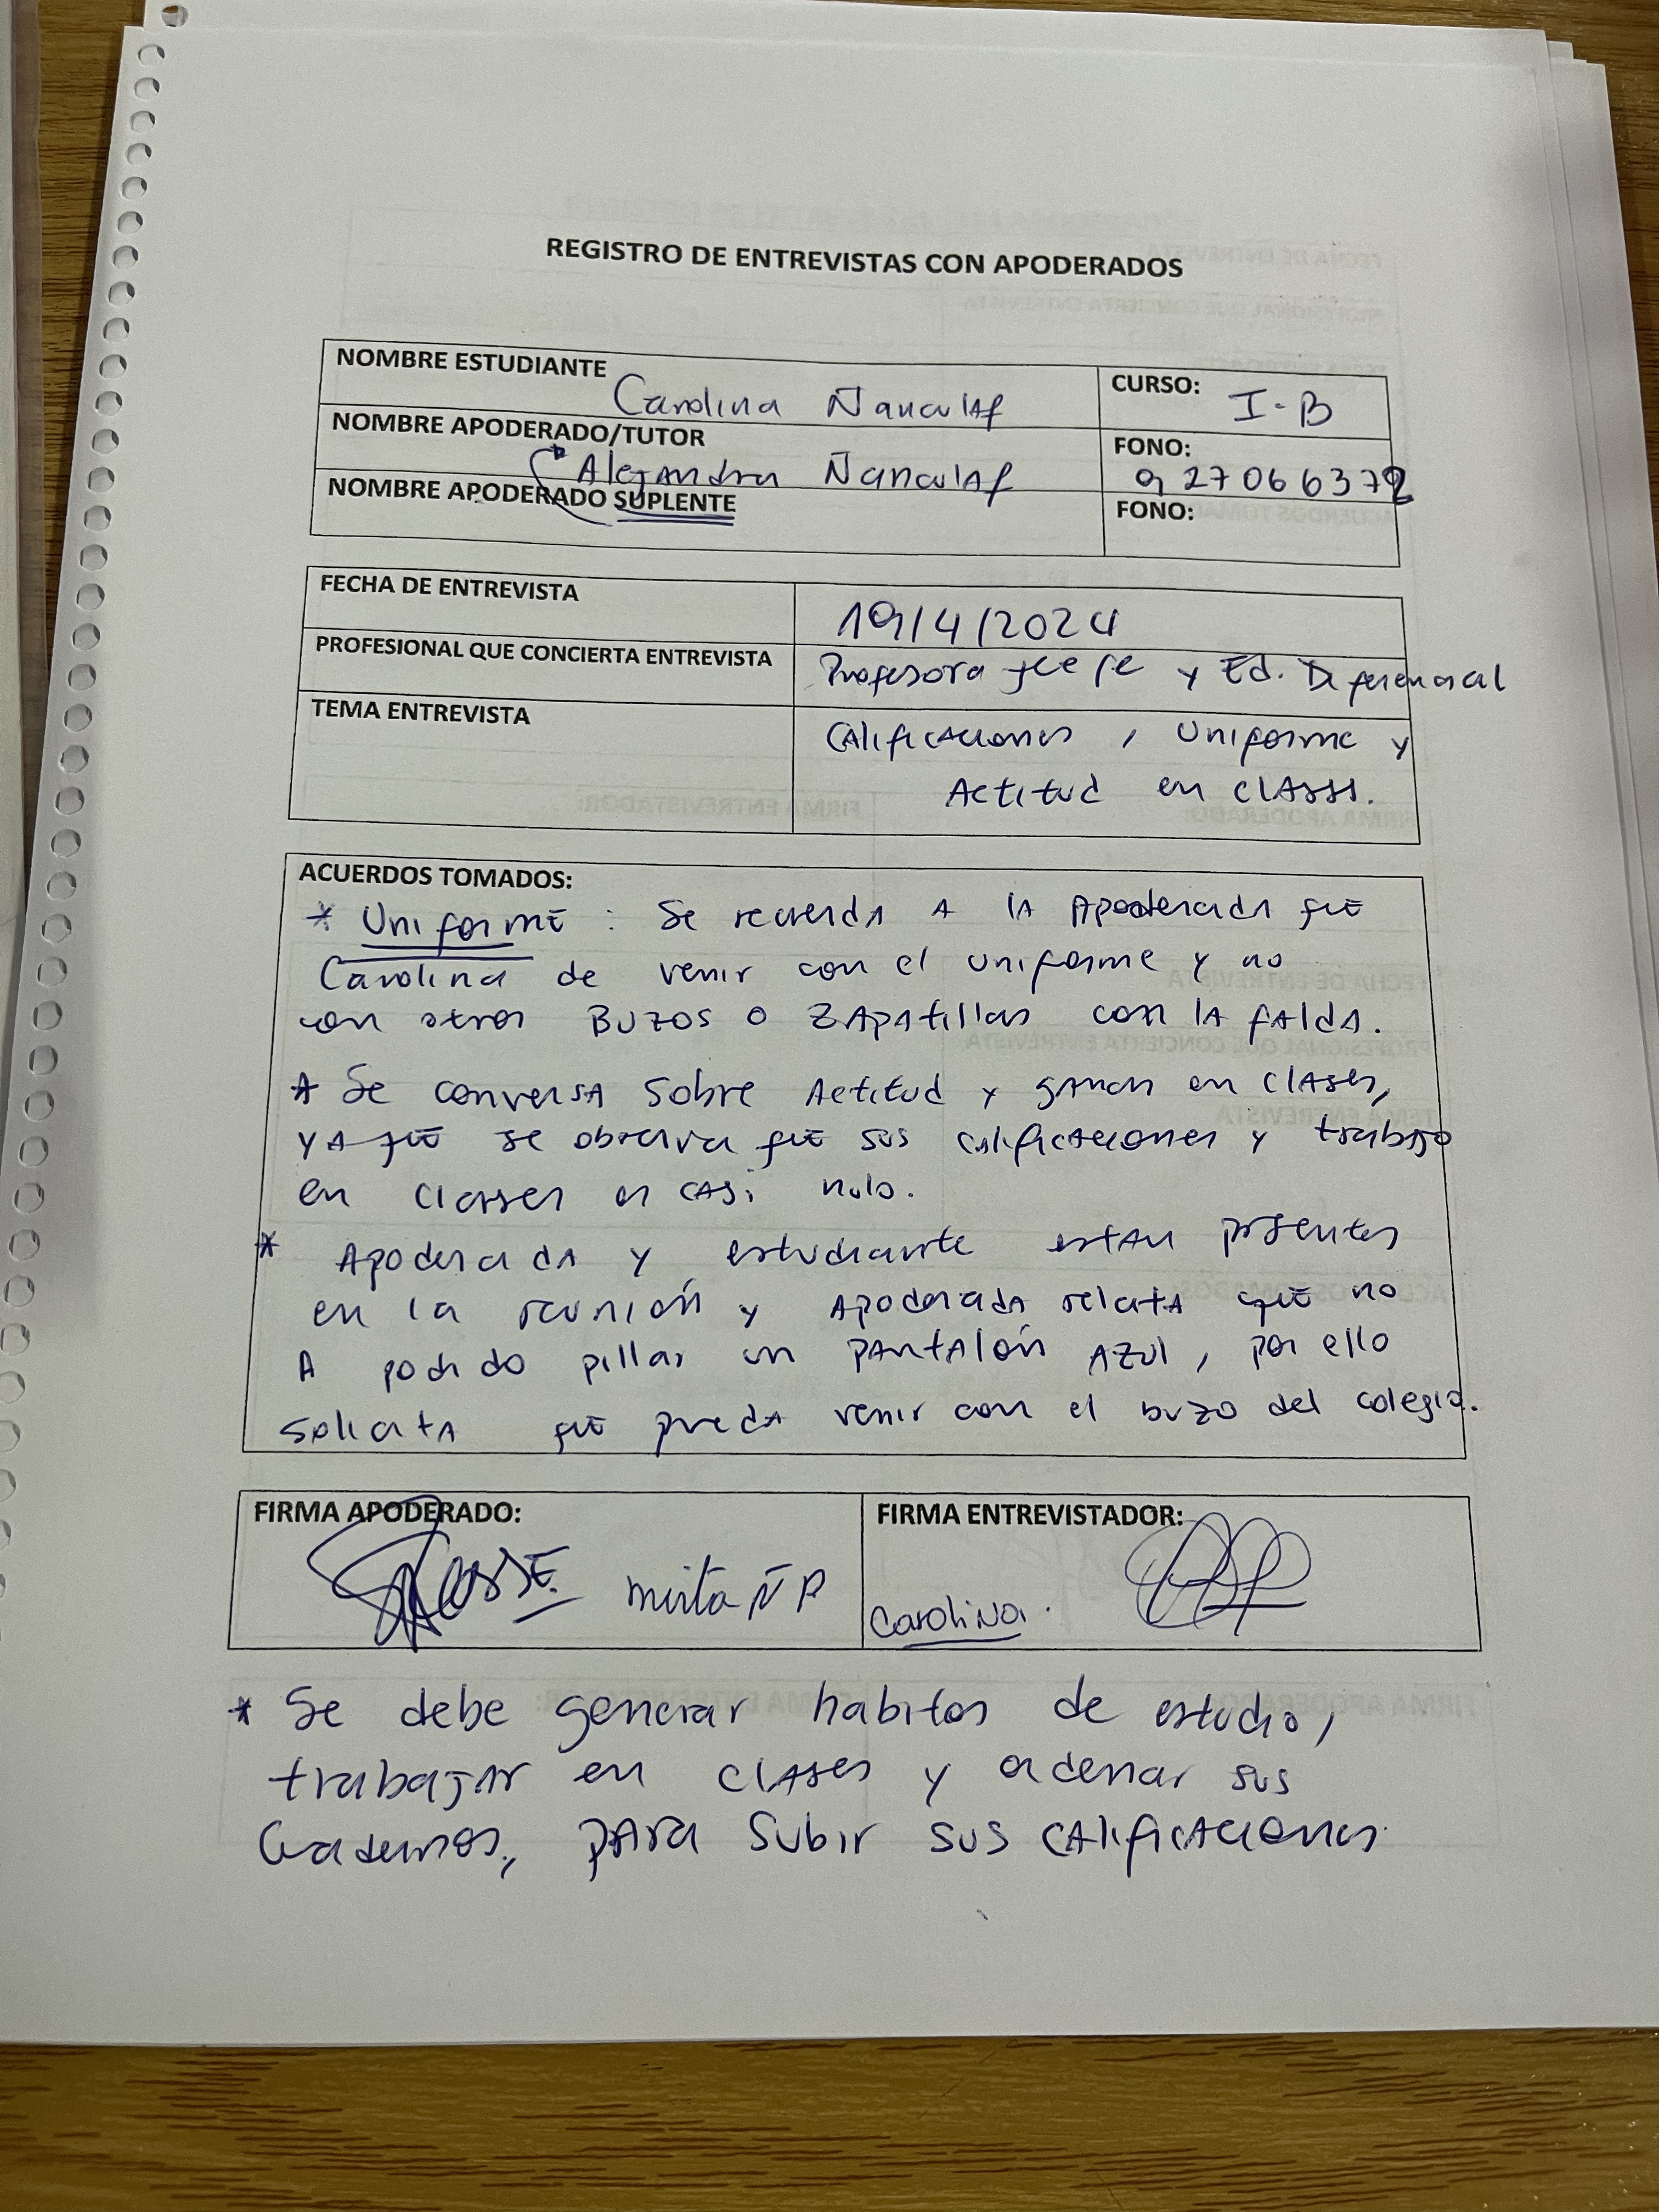 REGISTRO DE ENTREVISTAS CON APODERADOS
NOMBRE ESTUDIANTE Carolina Ñanculaf
CURSO: I-B
NOMBRE APODERADO/TUTOR
Alejandra Ñanculaf
FONO: 9 27066372
NOMBRE APODERADO SUPLENTE
FONO:
FECHA DE ENTREVISTA 19/4/2024
PROFESIONAL QUE CONCIERTA ENTREVISTA Profesora Jefe y Ed. Diferencial
TEMA ENTREVISTA Calificaciones, Uniforme y
Actitud en clases.
ACUERDOS TOMADOS:
* Uniforme : Se recuerda a la Apoderada que
Carolina de venir con el uniforme y no
con otros Buzos o Zapatillas con la falda.
* Se conversa sobre Actitud y ganas en clases,
ya que se observa que sus calificaciones y trabajo
en clases es casi nulo.
* Apoderada y estudiante están presentes
en la reunión y apoderada relata que no
a podido pillar un pantalón azul, por ello
solicita que pueda venir con el buzo del colegio.
FIRMA APODERADO:
Mirta Ñ P
FIRMA ENTREVISTADOR:
Carolina.
* Se debe generar habitos de estudio,
trabajar en clases y ordenar sus
Cuadernos, para subir sus calificaciones